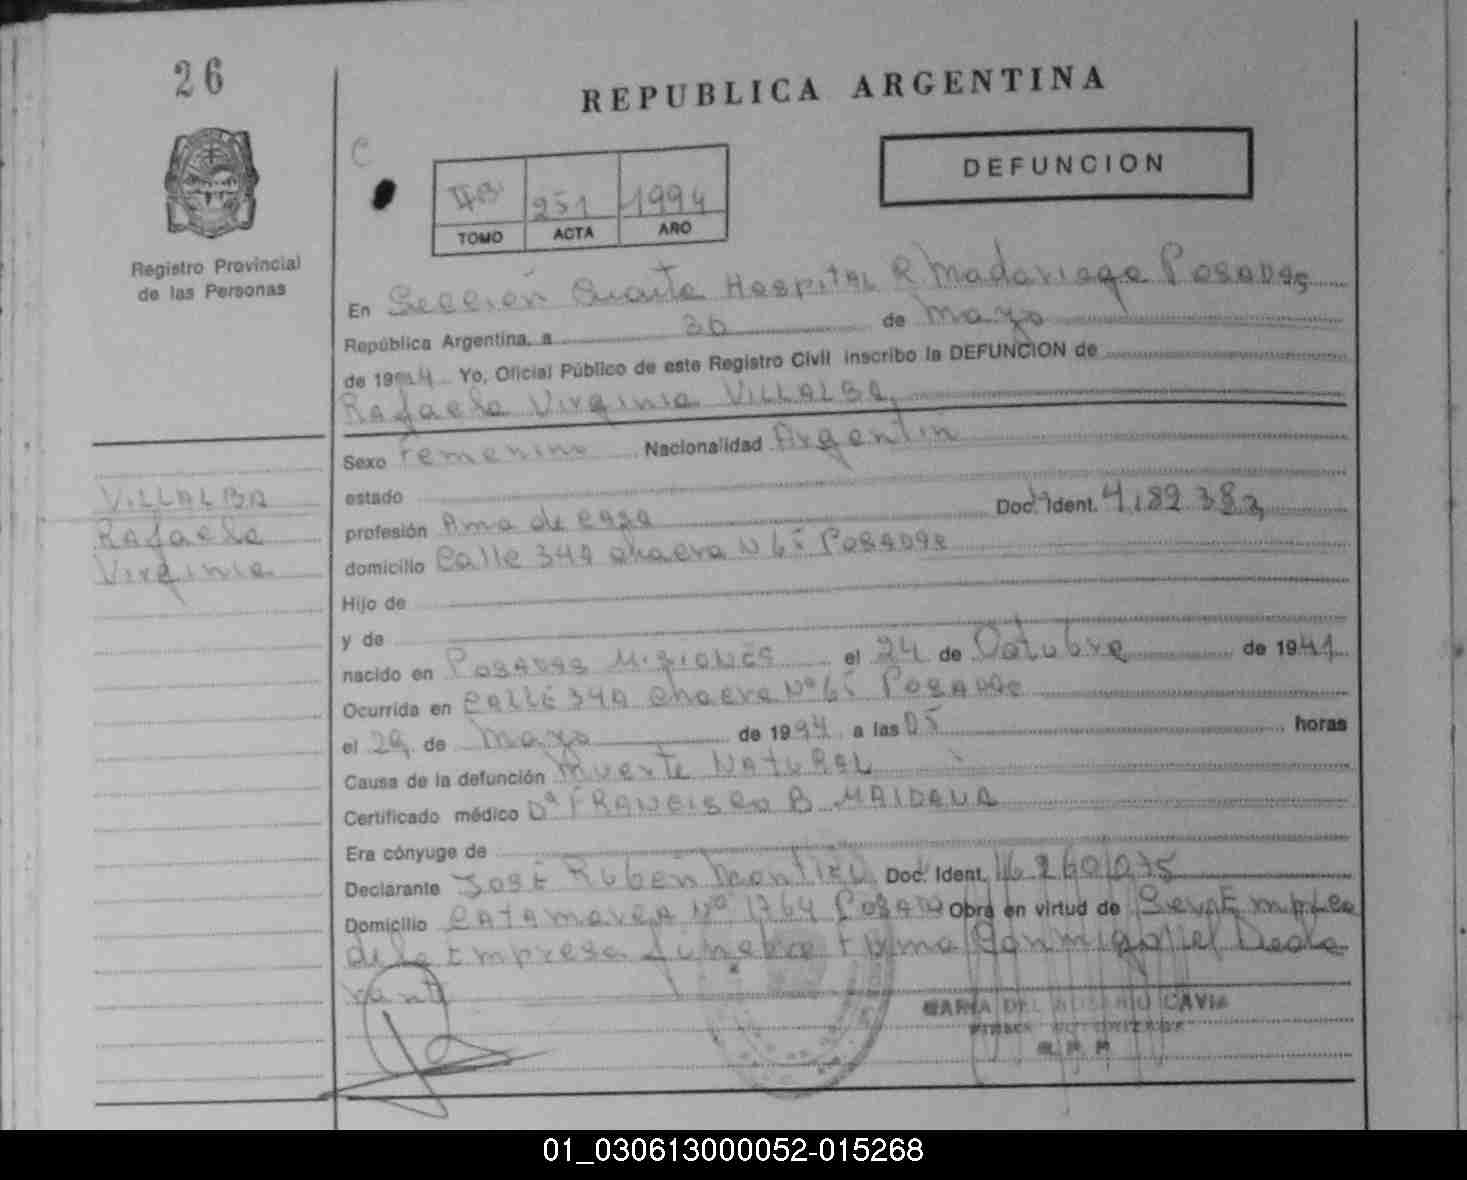 26
REPUBLICA ARGENTINA
DEFUNCION
251 1994
TOMO ACTA AÑO
Registro Provincial
de las Personas
En Sección Cuarta Hospital R Madariaga Posadas
República Argentina, a 30 de mayo
de 1994 Yo, Oficial Público de este Registro Civil inscribo la DEFUNCION de
Rafaela Virginia VILLALBA
Sexo Femenino Nacionalidad Argentin
VILLALBA
Rafaela
Virginia
estado
profesión Ama de casa Doc. Ident. 4.182.382
domicilio Calle 349 chacra N 65 Posadas
Hijo de
y de
nacido en Posadas Misiones el 24 de Octubre de 1941
Ocurrida en Calle 349 chacra Nº 65 Posadas
el 29 de mayo de 1994 a las 05 horas
Causa de la defunción muerte NATURAL
Certificado médico Dº FRANCISCO B MAIDANA
Era cónyuge de
Declarante José Rubén Doc. Ident. 16260075
Domicilio CATAMARCA Nº 1764 Posadas Obra en virtud de Ser Emplea
de la Empresa funebre firma Conmigo el Decla
rante
MARIA DEL ROSARIO CAVIA
FIRMA AUTORIZADA
R. P. P.
01_030613000052-015268